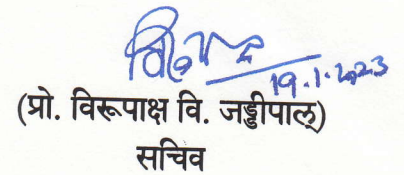 19.1.2023
(प्रो. विरूपाक्ष वि. जड्डीपाल्)
सचिव